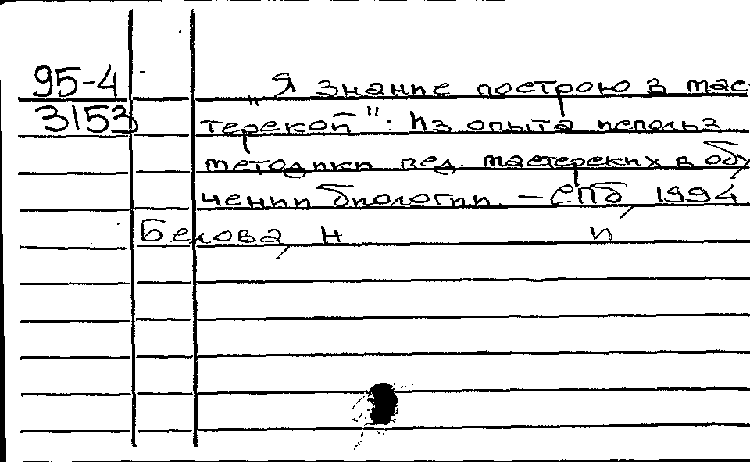 95-4 „Я знание построю в мас-
3153 терской": Из опыта использ
методики пед. мастерских в обу
чении биологии. – СПб, 1994
Белова, Н и